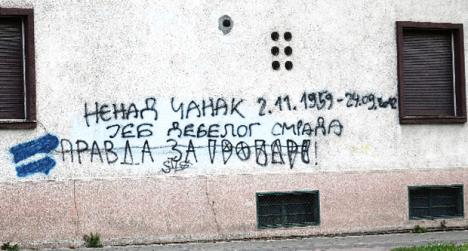 НЕНАД ЧАНАК 2.11.1959-24.09.
ЈЕБ ДЕБЕЛОГ СМРАДА
ПРАВДА ЗА !